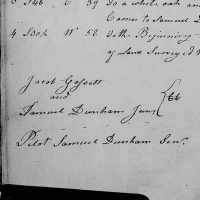 Do a white oak and
Comes to Samuel
4 Sook W 52 to the Beginning
of Land Survey'd
Jacob Gossett
and
Samuel Dunham Junr. } CC
Pilot Samuel Dunham Senr.